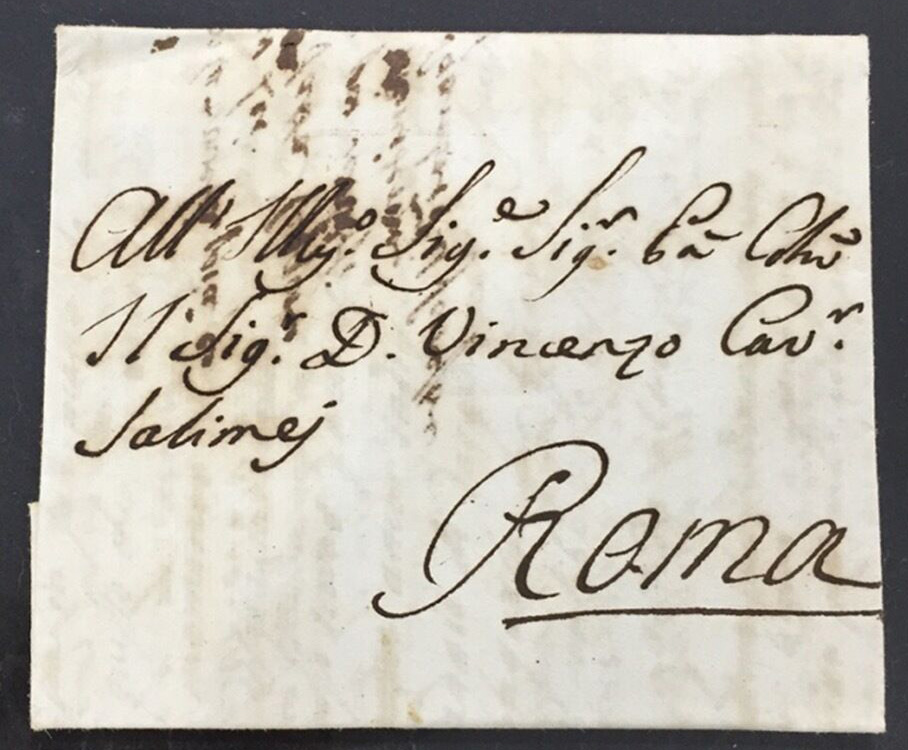 All' Illmo. Sig.e Sig.r Pñ Colmo
Il Sig.r D. Vincenzo Cav.r
Salimej
Roma